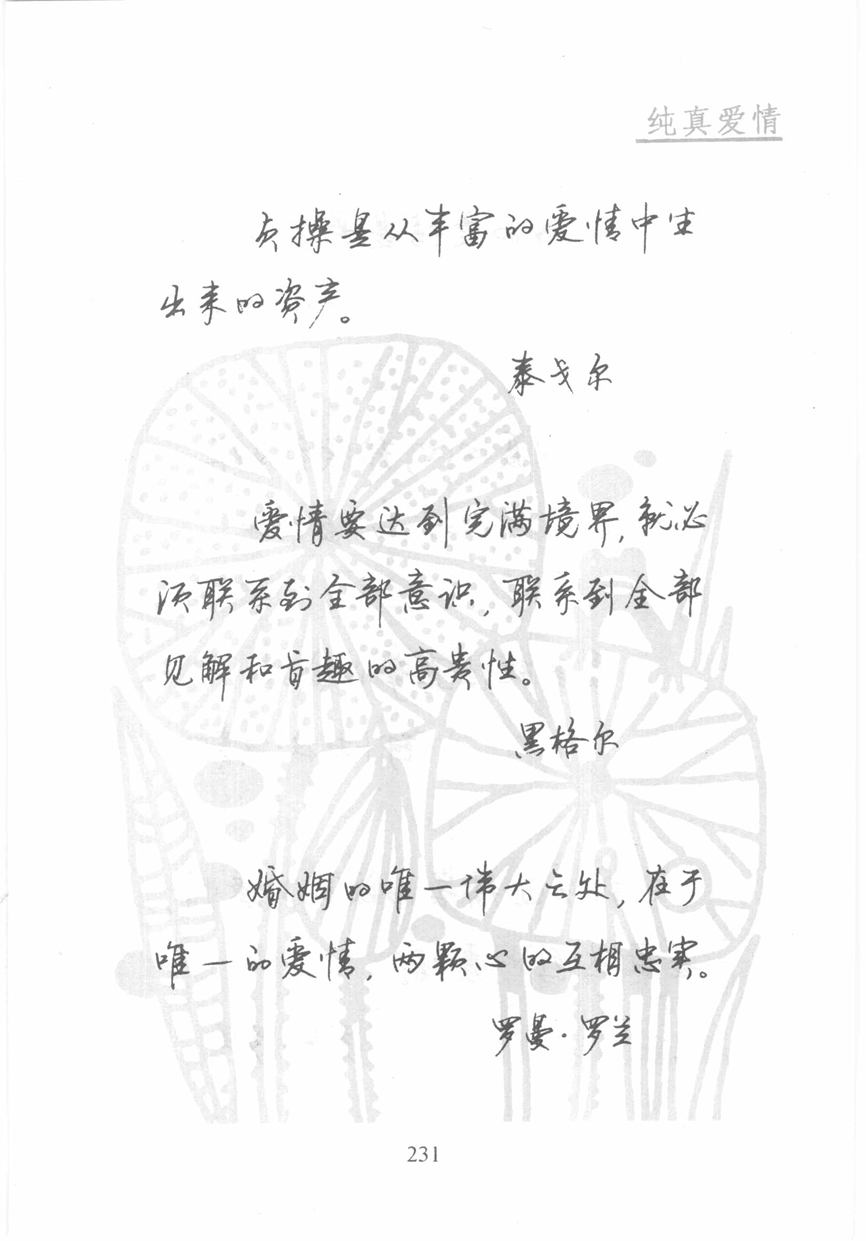 纯真爱情
贞操是从丰富的爱情中生
出来的资产。
泰戈尔
爱情要达到完满境界,就必
须联系到全部意识,联系到全部
见解和旨趣的高贵性。
黑格尔
婚姻的唯一伟大之处,在于
唯一的爱情,两颗心的互相忠实。
罗曼·罗兰
231